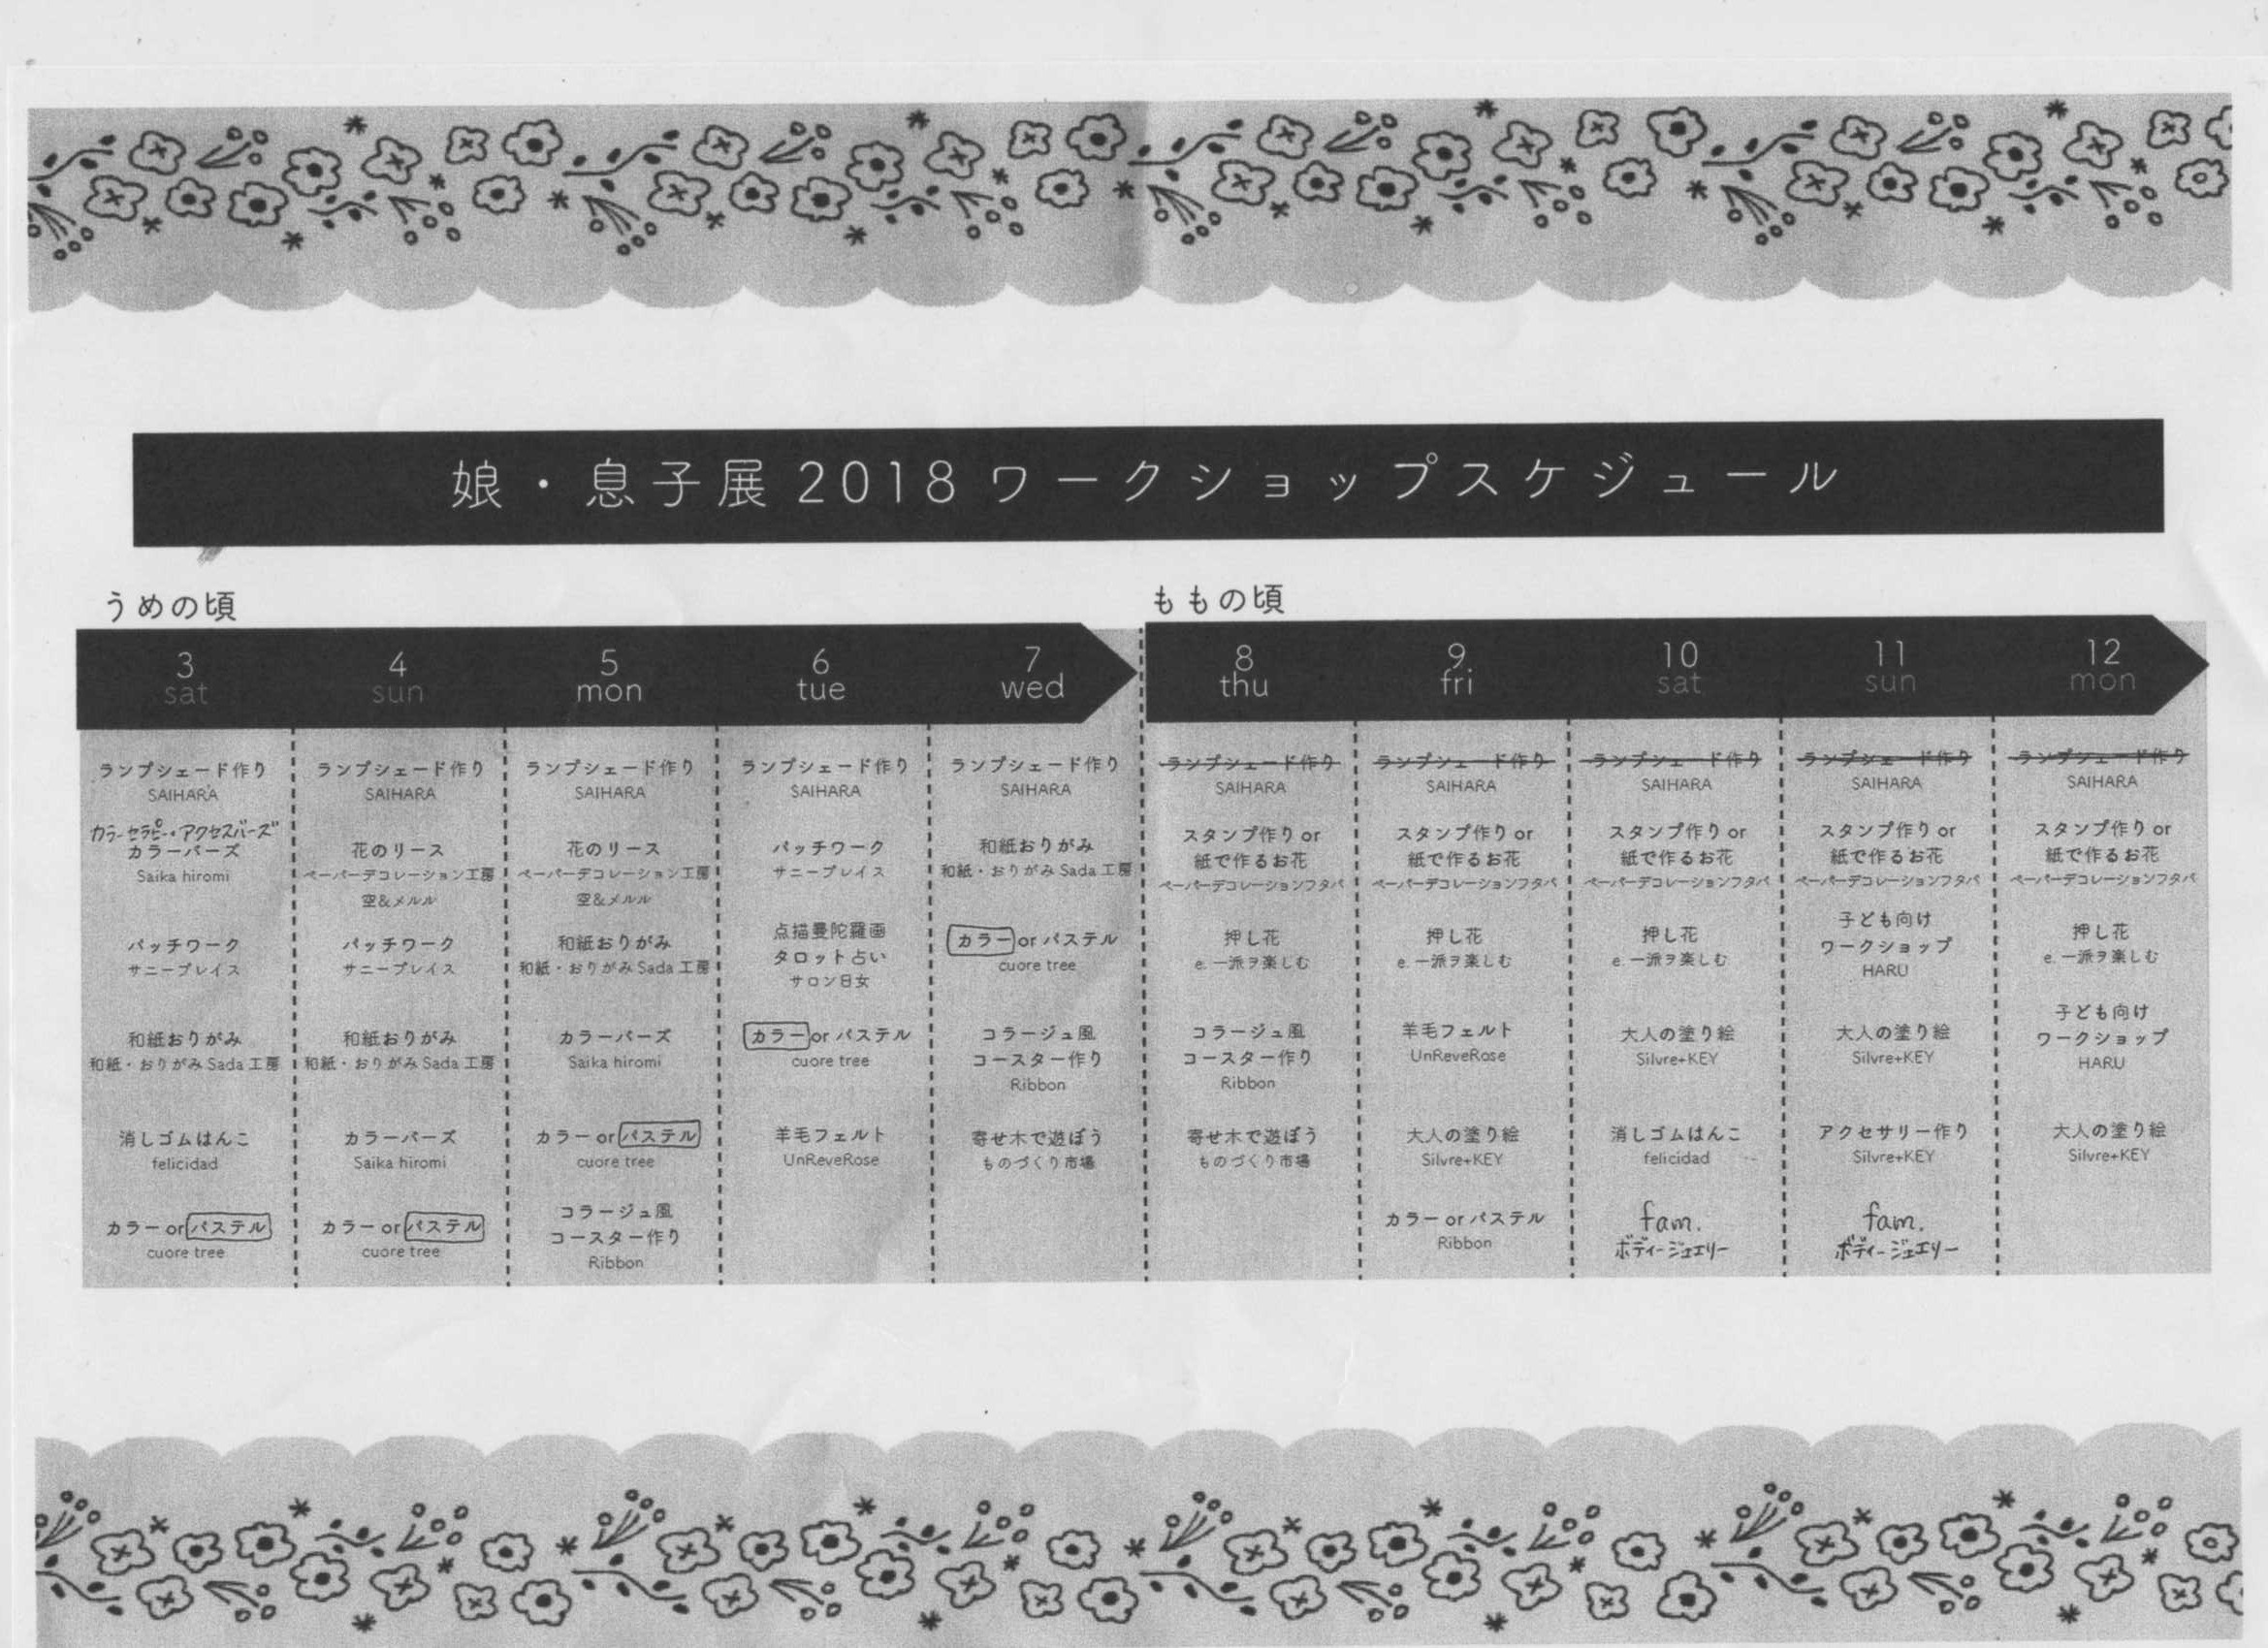 娘・息子展2018ワークショップスケジュール
うめの頃
3
sat
ランプシェード作り
SAIHARA
カラーセラピー・アクセスバーズ
カラーバーズ
Saika hiromi
パッチワーク
サニープレイス
和紙おりがみ
和紙・おりがみSada工房
消しゴムはんこ
felicidad
カラー or パステル
cuore tree
4
sun
ランプシェード作り
SAIHARA
花のリース
ペーパーデコレーション工房
空&メルル
パッチワーク
サニープレイス
和紙おりがみ
和紙・おりがみSada工房
カラーバーズ
Saika hiromi
カラー or パステル
cuore tree
5
mon
ランプシェード作り
SAIHARA
花のリース
ペーパーデコレーション工房
空&メルル
和紙おりがみ
和紙・おりがみSada工房
カラーバーズ
Saika hiromi
カラー or パステル
cuore tree
コラージュ風
コースター作り
Ribbon
6
tue
ランプシェード作り
SAIHARA
パッチワーク
サニープレイス
点描曼陀羅画
タロット占い
サロン日女
カラー or パステル
cuore tree
羊毛フェルト
UnReveRose
7
wed
ランプシェード作り
SAIHARA
和紙おりがみ
和紙・おりがみSada工房
カラー or パステル
cuore tree
コラージュ風
コースター作り
Ribbon
寄せ木で遊ぼう
ものづくり市場
ももの頃
8
thu
ランプシェード作り
SAIHARA
スタンプ作り or
紙で作るお花
ペーパーデコレーションフタバ
押し花
e.一派ヲ楽しむ
コラージュ風
コースター作り
Ribbon
寄せ木で遊ぼう
ものづくり市場
9
fri
ランプシェード作り
SAIHARA
スタンプ作り or
紙で作るお花
ペーパーデコレーションフタバ
押し花
e.一派ヲ楽しむ
羊毛フェルト
UnReveRose
大人の塗り絵
Silvre+KEY
カラー or パステル
Ribbon
10
sat
ランプシェード作り
SAIHARA
スタンプ作り or
紙で作るお花
ペーパーデコレーションフタバ
押し花
e.一派ヲ楽しむ
大人の塗り絵
Silvre+KEY
消しゴムはんこ
felicidad
fam.
ボディージュエリー
11
sun
ランプシェード作り
SAIHARA
スタンプ作り or
紙で作るお花
ペーパーデコレーションフタバ
子ども向け
ワークショップ
HARU
大人の塗り絵
Silvre+KEY
アクセサリー作り
Silvre+KEY
fam.
ボディージュエリー
12
mon
ランプシェード作り
SAIHARA
スタンプ作り or
紙で作るお花
ペーパーデコレーションフタバ
押し花
e.一派ヲ楽しむ
子ども向け
ワークショップ
HARU
大人の塗り絵
Silvre+KEY